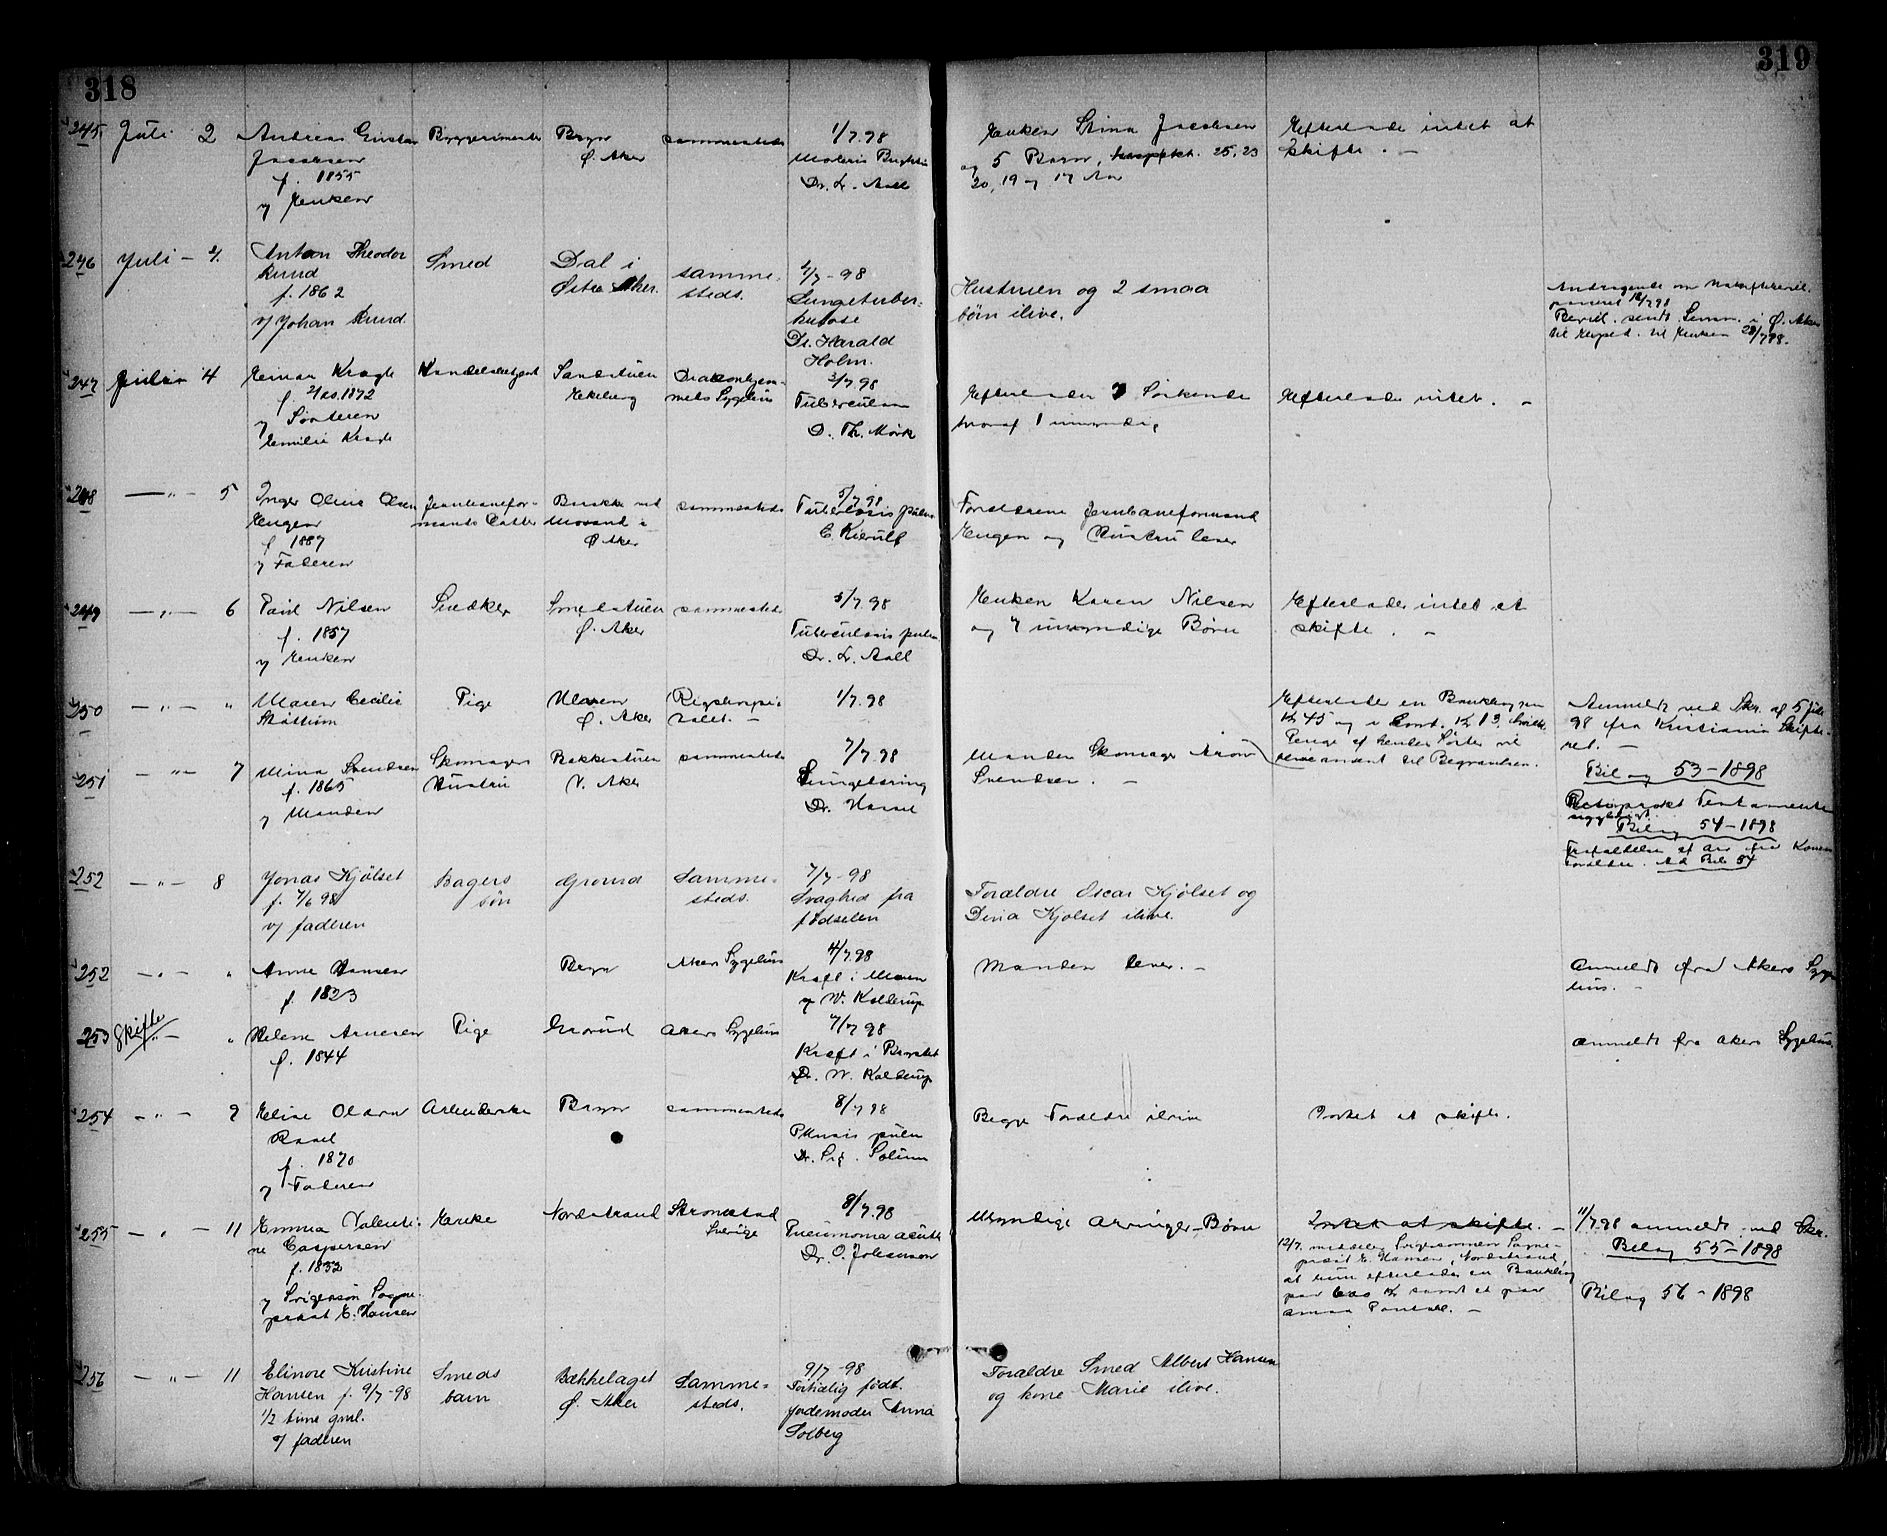 318
319
245. Juli 2 Andreas Gustav
Jacobsen
f. 1855
v/ Enken
Bryn
Ø. Aker
sammesteds
1/7 98
Morbus Brightii
Dr. L. Aall
Enken Stina Jacobsen
og 5 Børn, 25, 23
20, 19 og 17 Aar
Efterlader intet at
skifte. —
246 Juli — 4. Anton Theodor
Ruud
f. 1862
v/ Johan Ruud.
Smed
Dal i
Østre Aker.
samme-
steds.
4/7 - 98
Lungetuber-
kulose
Dr. Harald
Holm.
Hustruen og 2 smaa
børn ilive.
Bevil. sendt Lensm. i Ø. Aker
til Exped. til Enken 28/7 98.
247 4 Einar Kragh
1872
v/ Søsteren
Emilie Kragh
Handelsbetjent
Sandstuen
Ekeberg
Diakonhjem-
mets Sygehus
3/7 98
Tuberculose
D. Th. Mørk
Efterlader 7 Søskende
hvoraf 1 umyndig
Efterlader intet. —
248 — " — 5 Inger Olina Olsen
Engen
f 1887
v/ Faderen
Jernbanefor-
mands Datter
Ø Aker
sammesteds
5/7 98
Tuberclosis pulm
C Kierulf
Forældrene Jernbaneformand
Engen og Hustru lever
249 — " — 6 Paul Nilsen
f. 1857
v/ Enken
Snedker
Smedstuen
Ø. Aker
sammesteds
5/7 98
Tuberculosis pulm.
Dr. L. Aall
Enken Karen Nilsen
og 7 umyndige Børn
Efterlader intet at
skifte. —
250 — " — " Maren Cecilie
Pige
Ulven
Ø. Aker
Rigshospi-
talet. —
1/7 98
Efterlader en Bankbog paa
Kr 45 og i Kont. Kr 13, hvilke
Penge af hendes Søster vil
blive anvendt til Begravelsen.
Anmeldt ved Skr. af 5 Juli
98 fra Kristiania Skifte-
ret. —
Bilag 53 - 1898
251 — " — 7 Mina Svendsen
f. 1865
v/ Manden
Skomager
Hustru
Bakkestuen
V. Aker
sammesteds
7/7 98
Lungetæring
Dr. Hassel
Manden Skomager Aron
Svendsen. —
Testamente
Bilag 54 - 1898
Bil 54
252 — " — 8 Jonas Kjølset
f. 7/6 98
v/ faderen
Bagers
søn
Grorud
Samme-
steds.
7/7 - 98
Svaghed fra
fødselen
Forældre Oscar Kjølset og
Dina Kjølset ilive.
252 — " — " Anne Hansen
f. 1823
Bryn
Akers Sygehus
4/7 98
Kræft i Maven
v/ W. Kolderup
Manden lever. —
Anmeldt fra Akers Syge-
hus. —
253 Skifte " Helene Arnesen
f. 1844
Pige
Grorud
Akers Sygehus
7/7 98
Kræft i Brystet
Dr. W. Kolderup
Anmeldt fra Akers Sygehus.
254 — " — 9 Elise
f. 1870
v/ Faderen
Arbeiderske
Bryn
sammesteds
8/7 98
Pthisis pulm
Dr. Sig. Solum
Begge Forældre ilive
Intet at skifte.
255 — " — 11 Emma Valenti-
ne Caspersen
f. 1832
v/ Svigersøn Sogne-
præst E. Hansen
Enke
Nordstrand
Strømstad
Sverige
8/7 98
Pneumonia acuta
Dr. O. Johansson
Myndige Arvinger — Børn
Intet at skifte. —
12/7. meddeler Svigersønnen Sogne-
præst E. Hansen, Nordstrand,
at hun efterlader en Bankbog
paa Kr samt et par
smaa —
11/7 98 anmeldt ved Skr.
Bilag 55 - 1898
Bilag 56 - 1898
256 — " — 11 Elinore Kristine
Hansen f. 9/7 - 98
1/2 time gml.
v/ faderen
Smeds
barn
Bækkelaget
Ø. Aker
Samme-
steds.
9/7 - 98
Fortidlig født.
Jordemoder Anna
Solberg
Forældre Smed Albert Hansen
og kone Marie ilive.